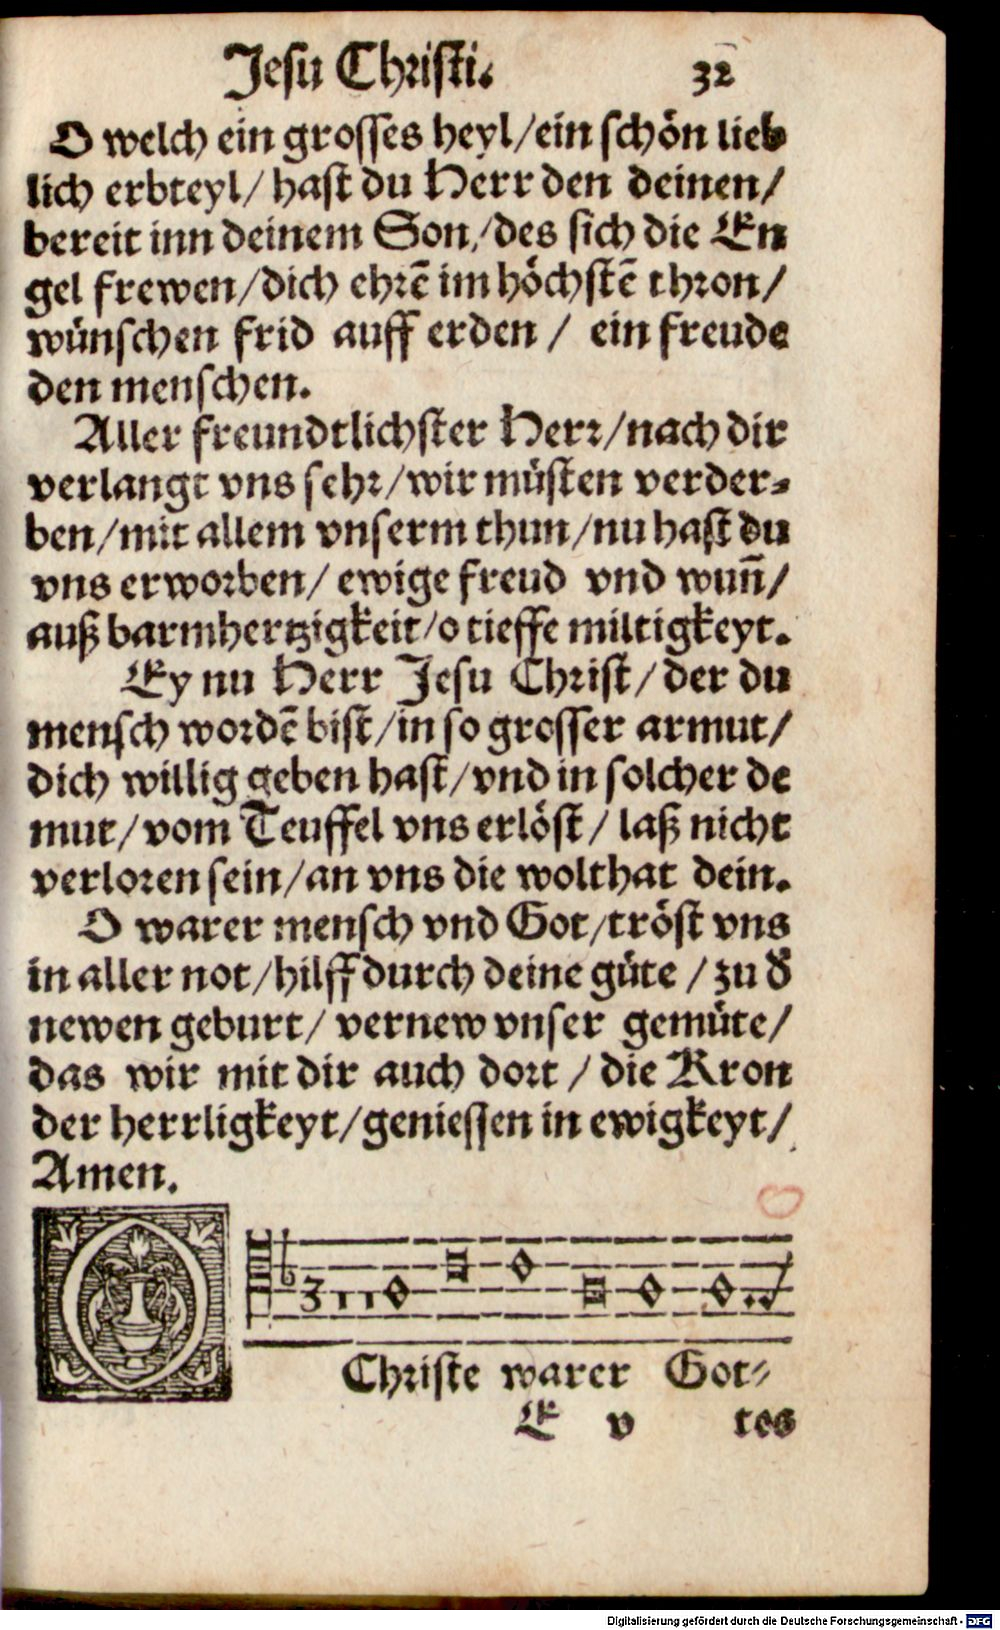 Jesu Christi.   32
O welch ein grosses heyl/ein schön lieb
lich erbteyl/ hast du Herr den deinen/
bereit inn deinem Son/des sich die En
gel frewen/dich ehrē im höchstē thron/
wünschen frid auff erden / ein freude
den menschen.
Aller freundtlichster Herr/nach dir
verlangt vns sehr/wir müsten verder⸗
ben/mit allem vnserm thun/nu hast du
vns erworben/ ewige freud vnd wun̄/
auß barmhertzigkeit/o tieffe miltigkeyt.
Ey nu Herr Jesu Christ/ der du
mensch wordē bist/in so grosser armut/
dich willig geben hast/vnd in solcher de
mut/ vom Teuffel vns erlöst/ laß nicht
verloren sein/an vns die wolthat dein.
O warer mensch vnd Got/tröst vns
in aller not/hilff durch deine güte / zu d̕
newen geburt/ vernew vnser gemüte/
das wir mit dir auch dort / die Kron
der herrligkeyt/geniessen in ewigkeyt/
Amen.
O
Christe warer Got⸗
E v   tes
Digitalisierung gefördert durch die Deutsche Forschungsgemeinschaft - DFG